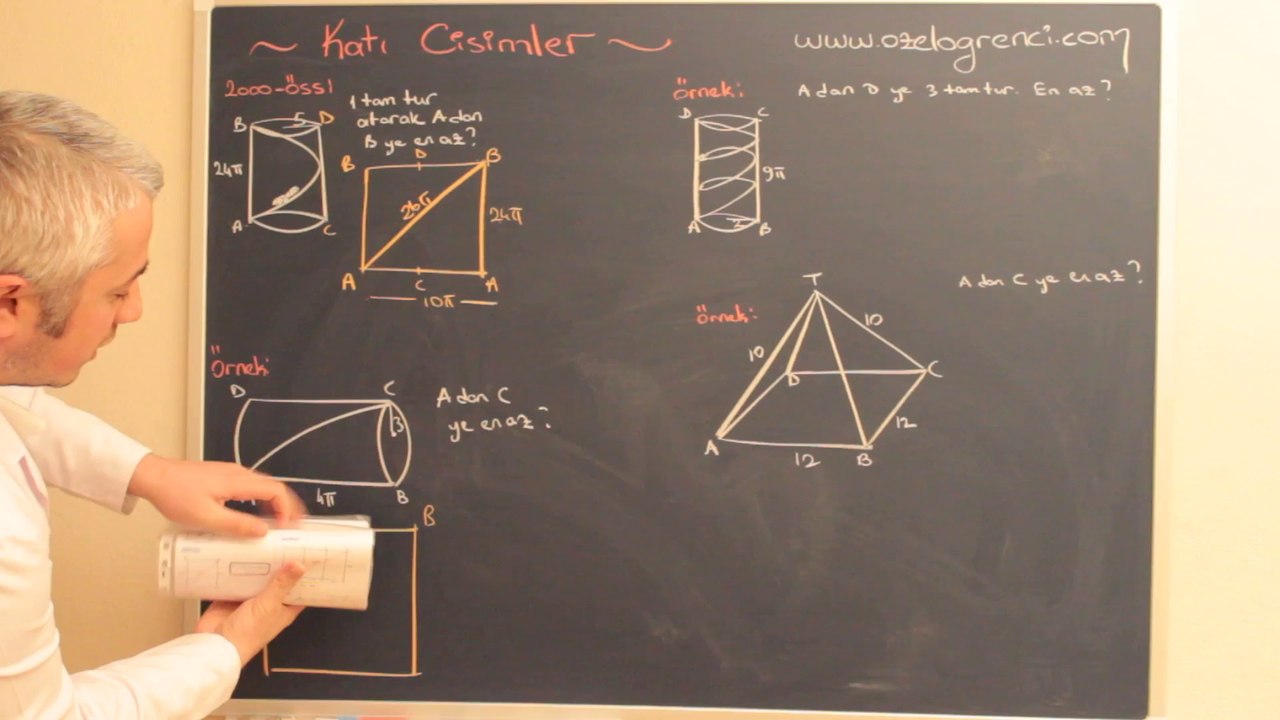 ~ Katı Cisimler ~
www.ozelogrenci.com
2000-ÖSS
1 tam tur
atarak A dan
B ye en az?
B 5 D
24π
A C
B D B
26π
24π
A C A
10π
Örnek:
A dan D ye 3 tam tur. En az?
D C
9π
A 2 B
Örnek:
A dan C ye en az?
T
10
10
D C
12
A 12 B
Örnek:
D C
3
4π B
A dan C
ye en az?
B